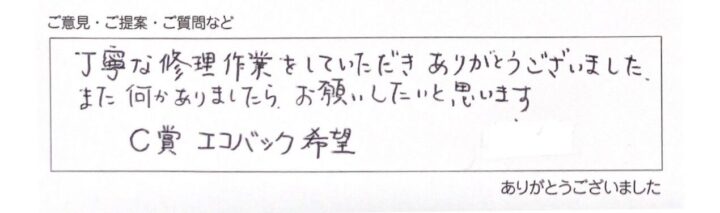 ご意見・ご提案・ご質問など
丁寧な修理作業をしていただき ありがとうございました.
また 何かありましたら、お願いしたいと思います
C賞 エコバック希望
ありがとうございました